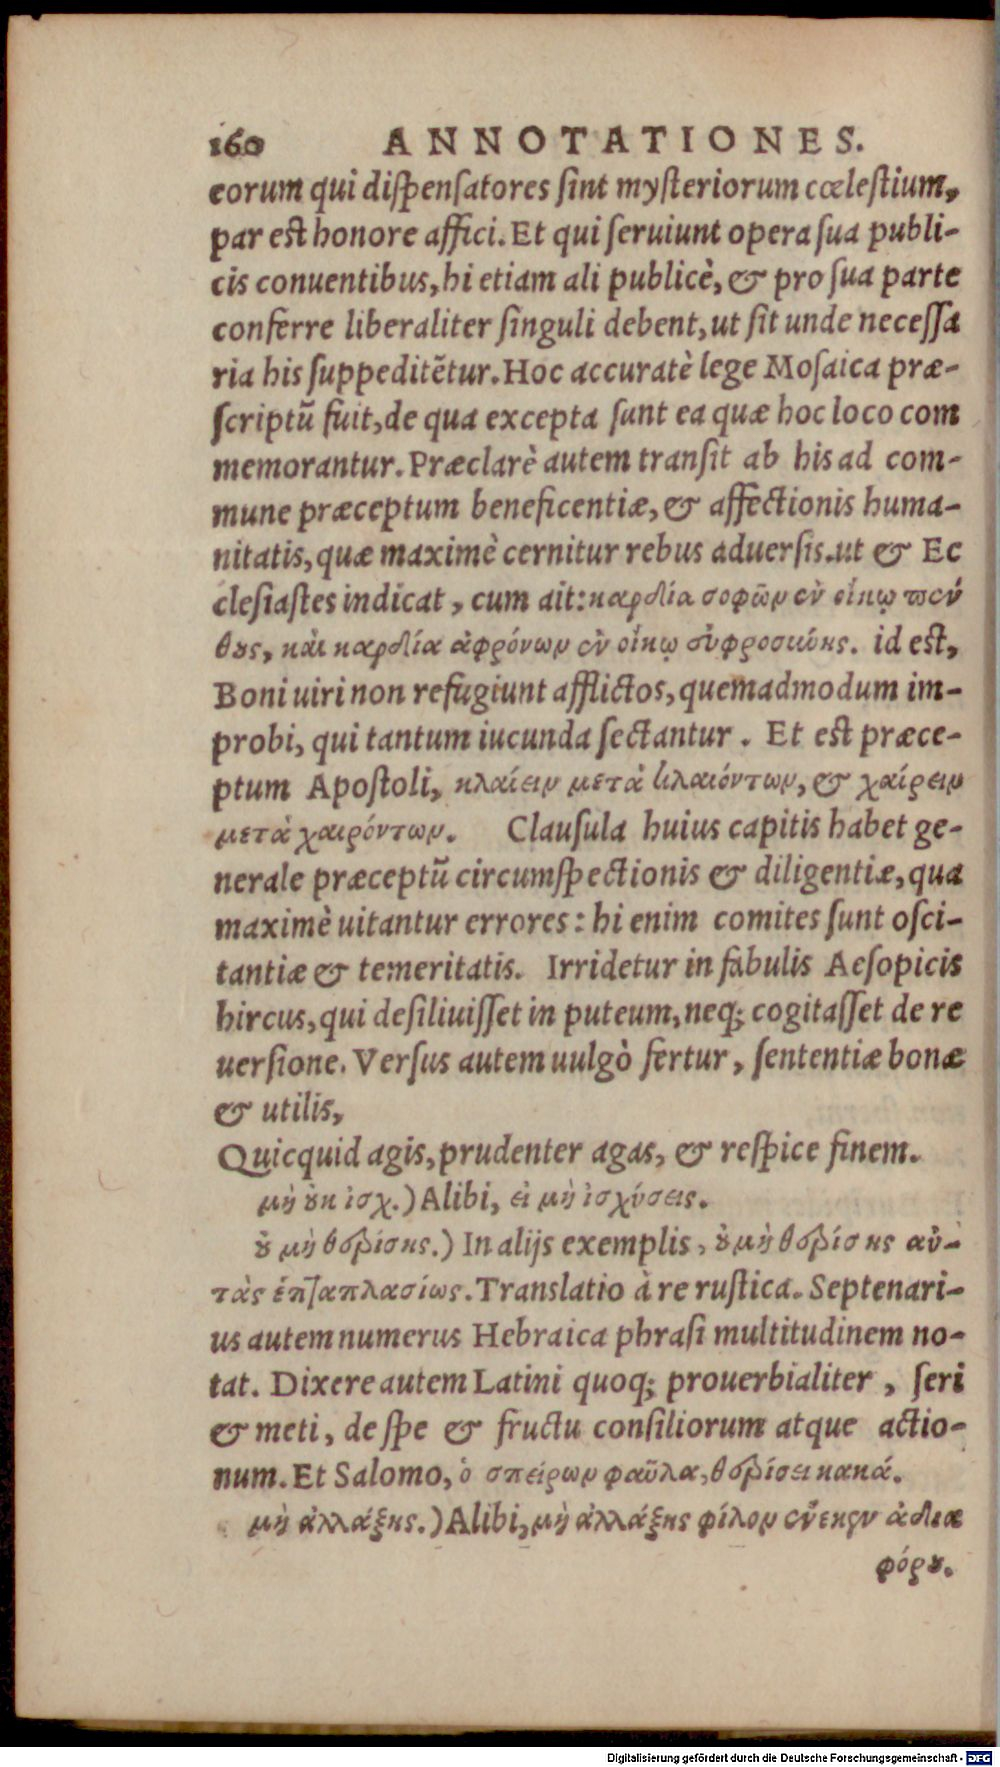 160 ANNOTATIONES.
eorum qui dispensatores sint mysteriorum cœlestium,
par est honore affici. Et qui seruiunt opera sua publi-
cis conuentibus, hi etiam ali publicè, & pro sua parte
conferre liberaliter singuli debent, ut sit unde necessa
ria his suppeditẽtur. Hoc accuratè lege Mosaica præ-
scriptũ fuit, de qua excepta sunt ea quæ hoc loco com
memorantur. Præclarè autem transit ab his ad com-
mune præceptum beneficentiæ, & affectionis huma-
nitatis, quæ maximè cernitur rebus aduersis. ut & Ec
clesiastes indicat, cum ait: καρδία σοφῶν ἐν οἴκῳ πέν
θους, καὶ καρδία ἀφρόνων ἐν οἴκῳ εὐφροσύνης. id est,
Boni uiri non refugiunt afflictos, quemadmodum im-
probi, qui tantum iucunda sectantur. Et est præce-
ptum Apostoli, κλαίειν μετὰ κλαιόντων, & χαίρειν
μετὰ χαιρόντων. Clausula huius capitis habet ge-
nerale præceptũ circumspectionis & diligentiæ, qua
maximè uitantur errores: hi enim comites sunt osci-
tantiæ & temeritatis. Irridetur in fabulis Aesopicis
hircus, qui desiliuisset in puteum, neq; cogitasset de re
uersione. Versus autem uulgò fertur, sententiæ bonæ
& utilis,
Quicquid agis, prudenter agas, & respice finem.
μὴ οὐκ ἰσχ.) Alibi, εἰ μὴ ἰσχύσεις.
οὐ μὴ θερίσης.) In alijs exemplis, οὐ μὴ θερίσης αὐ-
τὰς ἑπταπλασίως. Translatio à re rustica. Septenari-
us autem numerus Hebraica phrasi multitudinem no-
tat. Dixere autem Latini quoq; prouerbialiter, seri
& meti, de spe & fructu consiliorum atque actio-
num. Et Salomo, ὁ σπείρων φαῦλα, θερίσει κακά.
μὴ ἀλλάξης.) Alibi, μὴ ἀλλάξης φίλον ἕνεκεν ἀδια
φόρου.
Digitalisierung gefördert durch die Deutsche Forschungsgemeinschaft - DFG